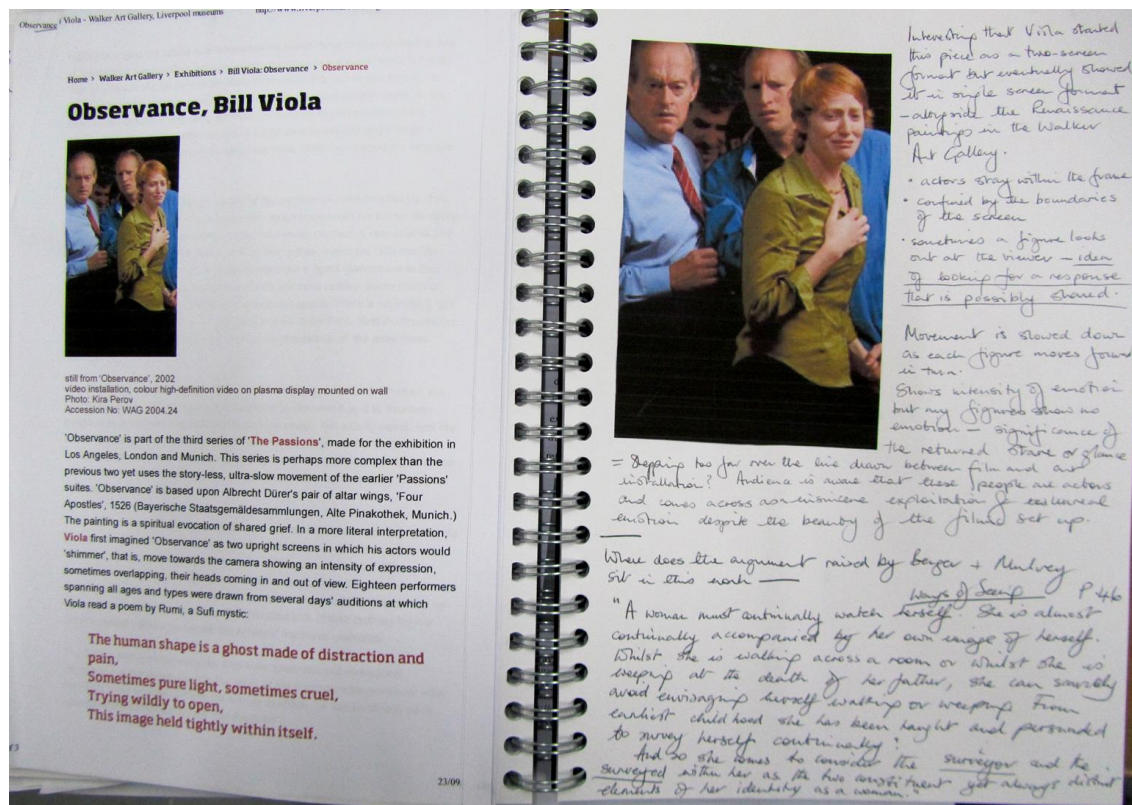 Observance, Bill Viola - Walker Art Gallery, Liverpool museums
Home > Walker Art Gallery > Exhibitions > Bill Viola: Observance > Observance
Observance, Bill Viola
still from 'Observance', 2002
video installation, colour high-definition video on plasma display mounted on wall
Photo: Kira Perov
Accession No: WAG 2004.24
'Observance' is part of the third series of 'The Passions', made for the exhibition in
Los Angeles, London and Munich. This series is perhaps more complex than the
previous two yet uses the story-less, ultra-slow movement of the earlier 'Passions'
suites. 'Observance' is based upon Albrecht Dürer's pair of altar wings, 'Four
Apostles', 1526 (Bayerische Staatsgemäldesammlungen, Alte Pinakothek, Munich.)
The painting is a spiritual evocation of shared grief. In a more literal interpretation,
Viola first imagined 'Observance' as two upright screens in which his actors would
'shimmer', that is, move towards the camera showing an intensity of expression,
sometimes overlapping, their heads coming in and out of view. Eighteen performers
spanning all ages and types were drawn from several days' auditions at which
Viola read a poem by Rumi, a Sufi mystic:
The human shape is a ghost made of distraction and
pain,
Sometimes pure light, sometimes cruel,
Trying wildly to open,
This image held tightly within itself.
23/09
Interesting that Viola started
this piece as a two-screen
format but eventually showed
it in single screen format
- alongside the Renaissance
paintings in the Walker
Art Gallery.
• actors stay within the frame
• confined by the boundaries
of the screen
• sometimes a figure looks
out at the viewer - idea
of looking for a response
that is possibly shared.
Movement is slowed down
as each figure moves forward
in turn.
Shows intensity of emotion
but my figures show no
emotion - significance of
the returned stare or glance
= Stepping too far over the line drawn between film and art
installation? Audience is aware that these people are actors
and comes across as exploitation of
emotion despite the beauty of the filmed set up.
Where does the argument raised by Berger + Mulvey
sit in this work -
Ways of Seeing P 46
"A woman must continually watch herself. She is almost
continually accompanied by her own image of herself.
Whilst she is walking across a room or whilst she is
weeping at the death of her father, she can scarcely
avoid envisaging herself walking or weeping. From
earliest childhood she has been taught and persuaded
to survey herself continually.
And so she comes to consider the surveyor and the
surveyed within her as the two constituent yet always distinct
elements of her identity as a woman."